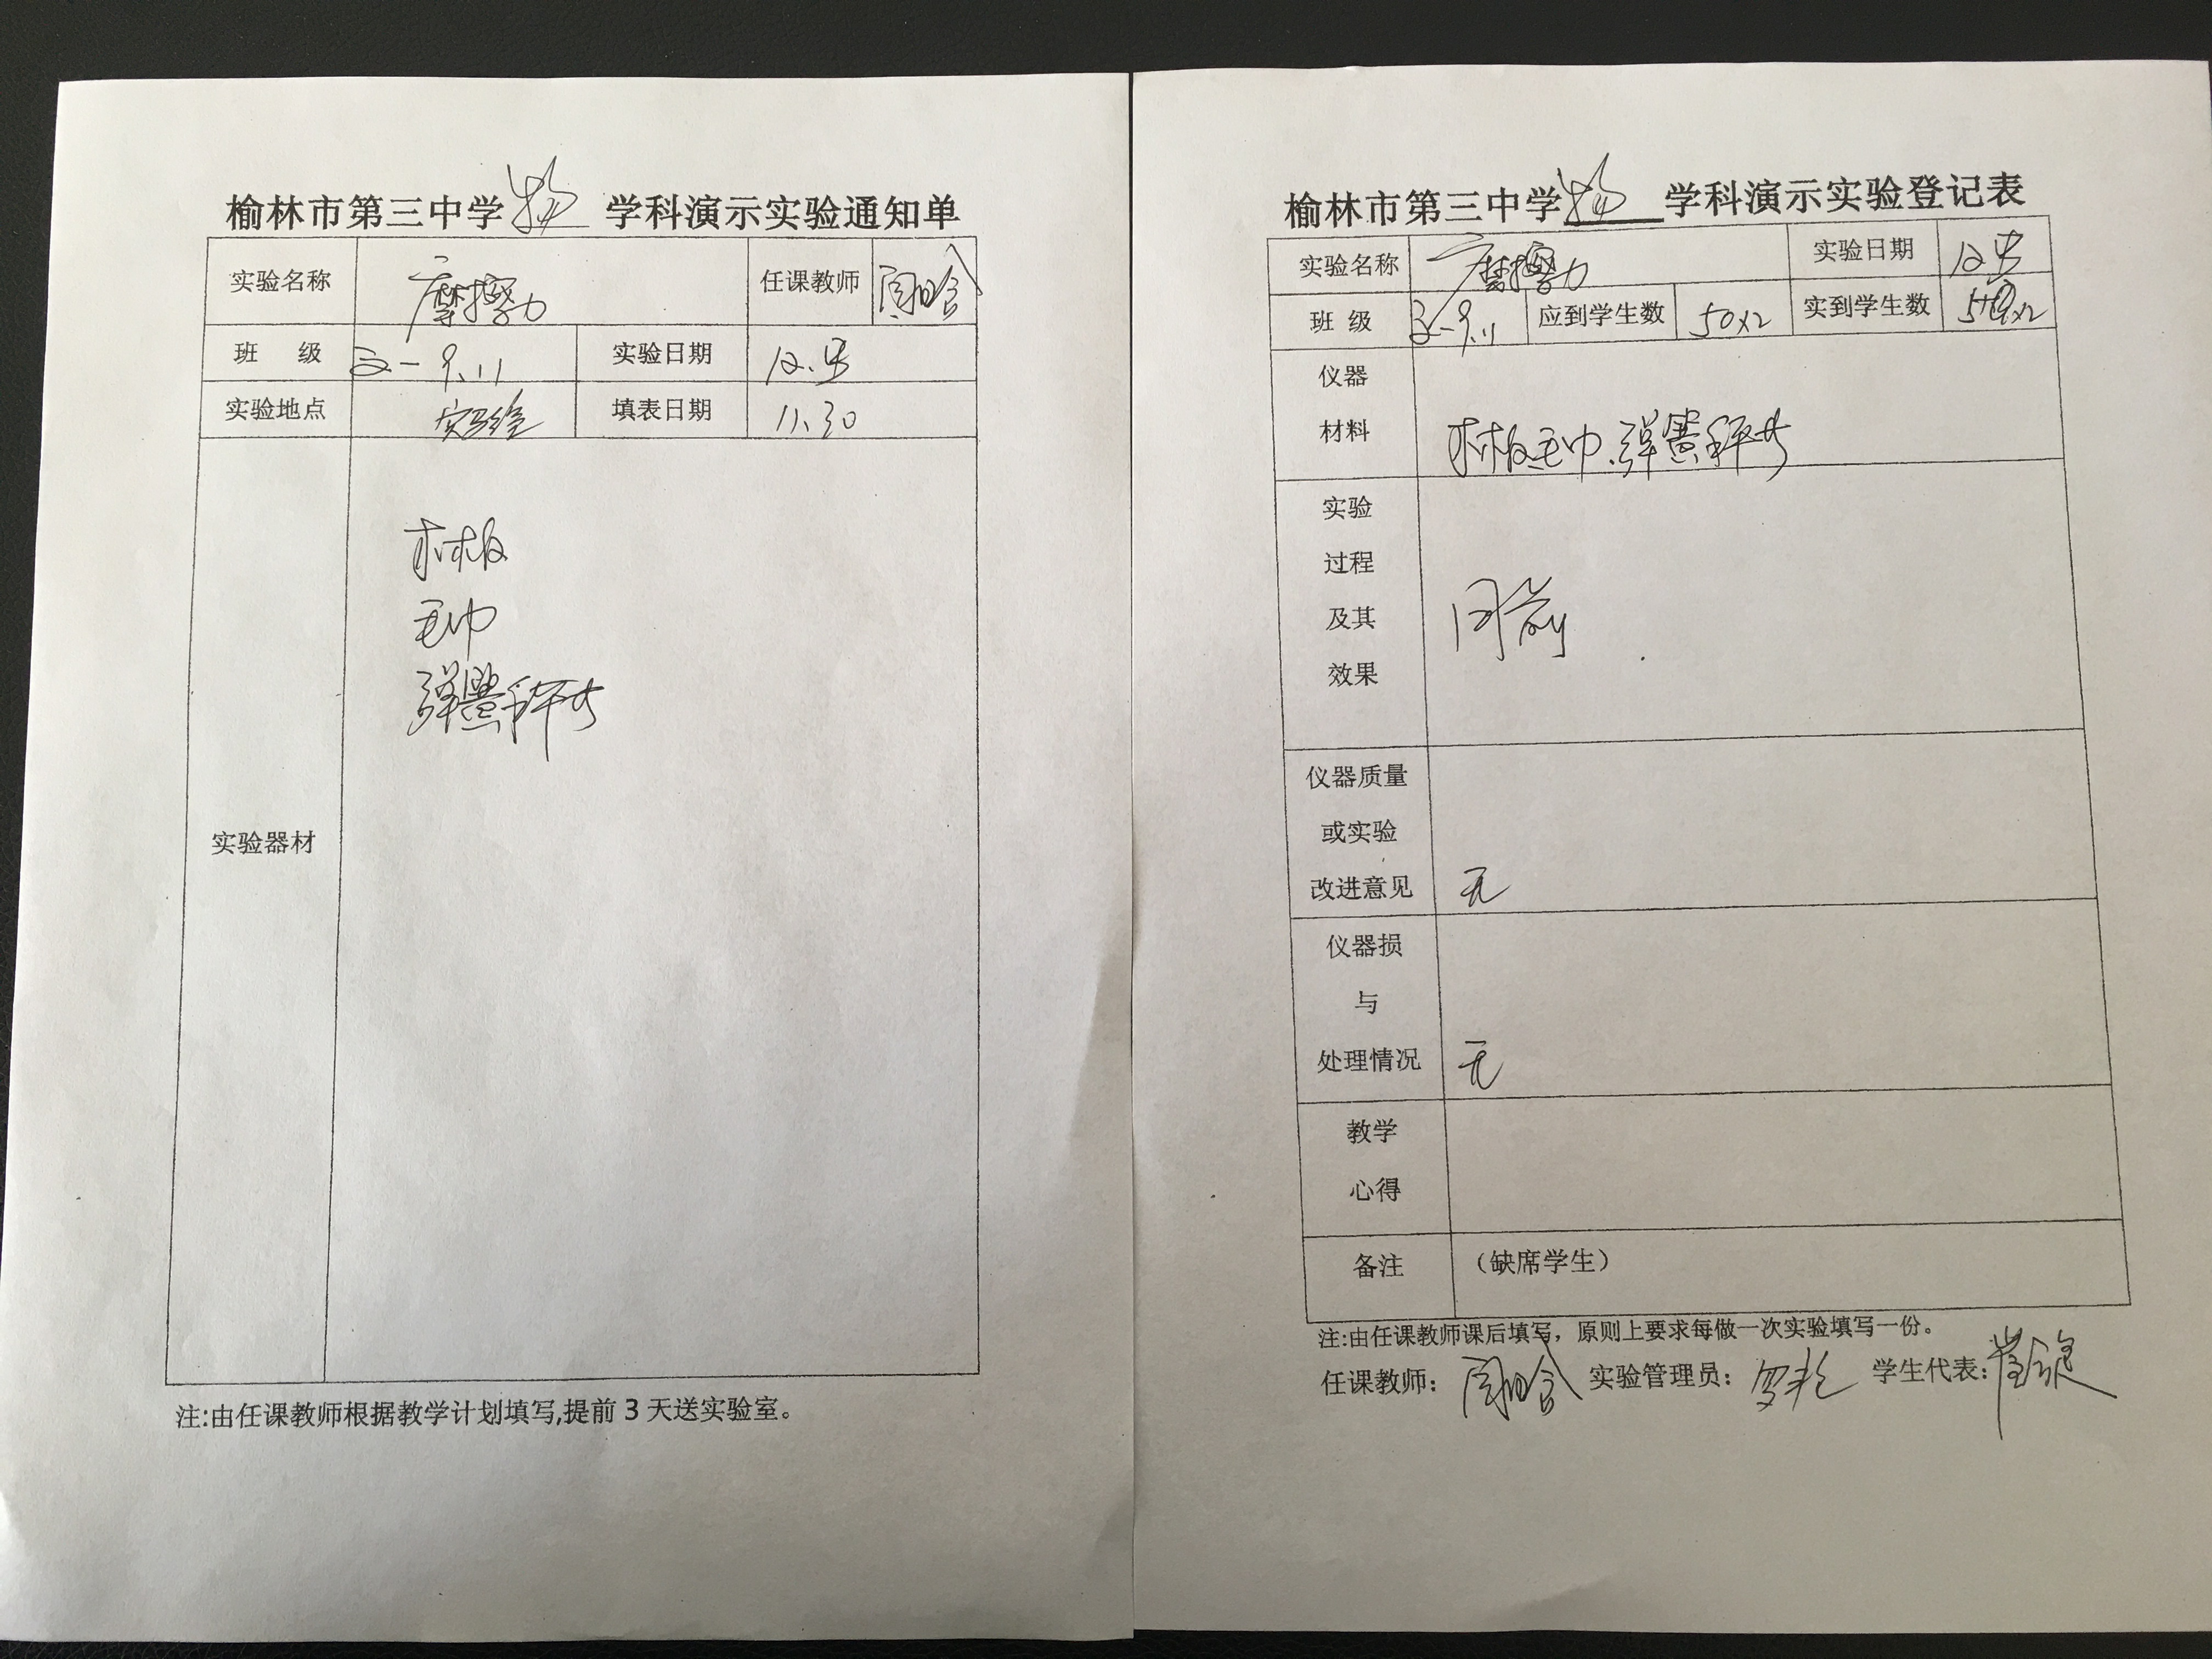 榆林市第三中学 物 学科演示实验通知单
实验名称 摩擦力 任课教师
班 级 高一 9.11 实验日期 12.5
实验地点 实验室 填表日期 11.30
实验器材
木板
毛巾
弹簧秤
注:由任课教师根据教学计划填写,提前3天送实验室。
榆林市第三中学 物 学科演示实验登记表
实验名称 摩擦力 实验日期 12.5
班 级 高一 9.11 应到学生数 50×2 实到学生数
仪器
材料 木板 毛巾.弹簧秤
实验
过程
及其 同前
效果
仪器质量
或实验
改进意见 无
仪器损
与
处理情况 无
教学
心得
备注 （缺席学生）
注:由任课教师课后填写，原则上要求每做一次实验填写一份。
任课教师： 实验管理员： 学生代表：